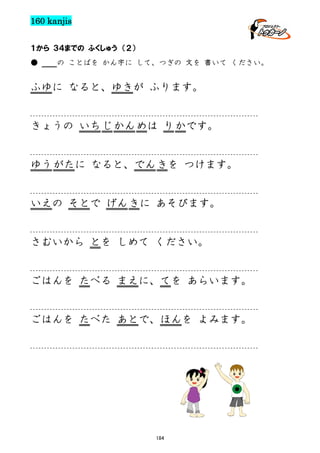 160 kanjis
プロジェクト
1から 34までの ふくしゅう (2)
● ___の ことばを かん字に して、つぎの 文を 書いて ください。
ふゆに なると、ゆきが ふります。
きょうの いちじかんめは りかです。
ゆうがたに なると、でんきを つけます。
いえの そとで げんきに あそびます。
さむいから とを しめて ください。
ごはんを たべる まえに、てを あらいます。
ごはんを たべた あとで、ほんを よみます。
184